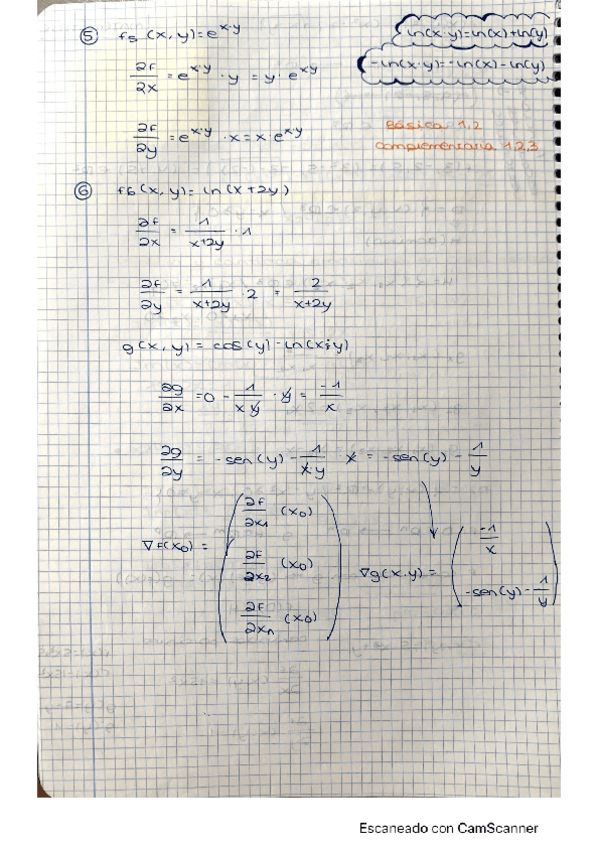 ⑤ f₅ (x, y) = e^x·y
ln(x·y)=ln(x)+ln(y)
-ln(x·y)=-ln(x)-ln(y)
∂f/∂x = e^x·y · y = y · e^x·y
∂f/∂y = e^x·y · x = x · e^x·y
Básica 1,2
Complementaria 1,2,3
⑥ f6 (x, y) = ln(x+2y)
∂f/∂x = 1/x+2y · 1
∂f/∂y = 1/x+2y · 2 = 2/x+2y
g(x, y) = cos(y) - ln(x·y)
∂g/∂x = 0 - 1/xy · y = -1/x
∂g/∂y = -sen(y) - 1/x·y · x = -sen(y) - 1/y
∇f(x₀) = ( ∂f/∂x₁ (x₀)
∂f/∂x₂ (x₀)
∂f/∂xn (x₀) )
∇g(x·y) = ( -1/x
-sen(y) - 1/y )
Escaneado con CamScanner